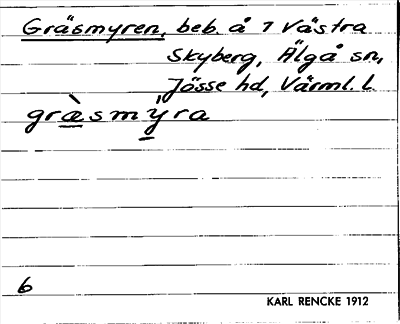 Gräsmyren, beb. å 7 Västra
Skyberg, Älgå sn,
Jösse hd, Värml. l.
gr̀æsmýra
6
KARL RENCKE 1912